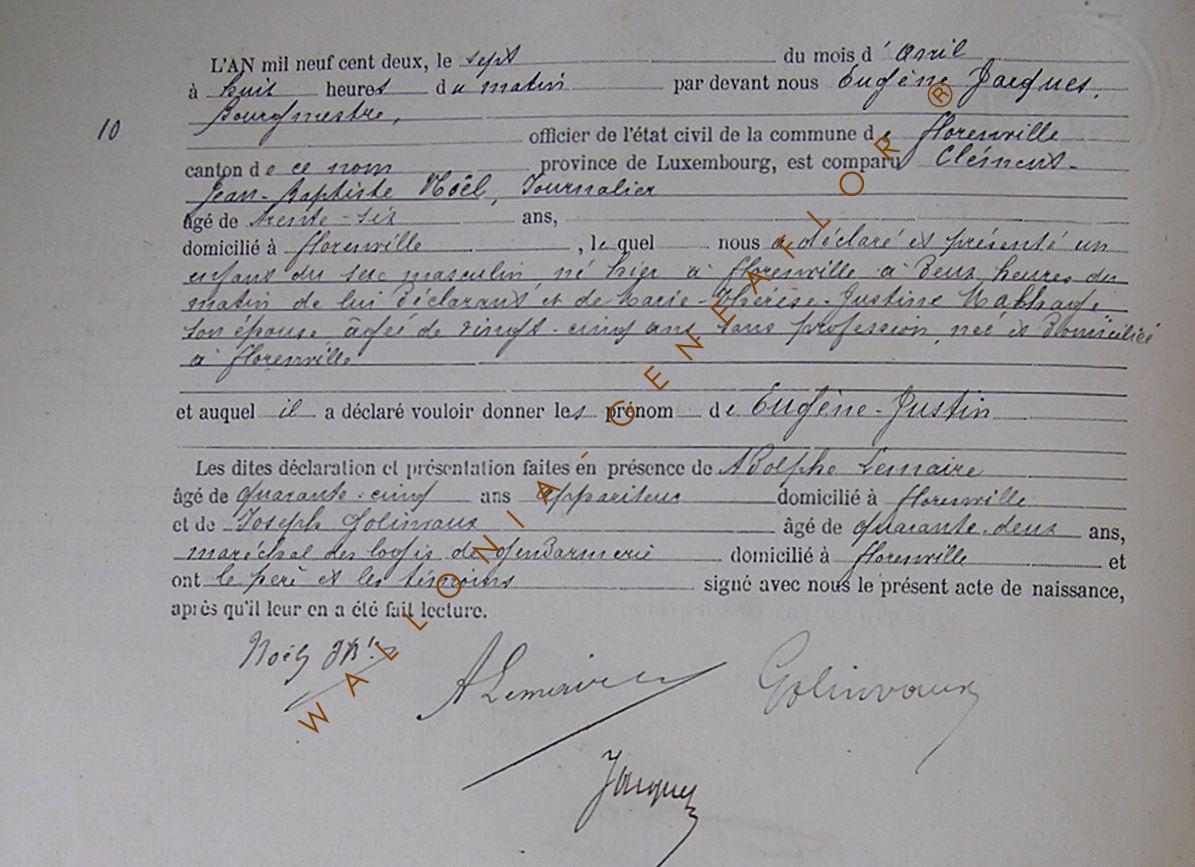 L'AN mil neuf cent deux, le sept du mois d' avril
à huit heures du matin par devant nous Eugène Jacques,
Bourgmestre,
10 officier de l'état civil de la commune de Florenville
canton de ce nom province de Luxembourg, est comparu Clément-
Jean-Baptiste Noël, Journalier
âgé de trente-six ans,
domicilié à Florenville, lequel nous a déclaré et présenté un
enfant du sexe masculin né hier à Florenville à deux heures du
matin de lui déclarant et de Marie-Thérèse-Justine
son épouse âgée de vingt-cinq ans sans profession, née et domiciliée
à Florenville
et auquel il a déclaré vouloir donner les prénom de Eugène-Justin
Les dites déclaration et présentation faites en présence de Adolphe Lemaire
âgé de quarante-cinq ans appariteur domicilié à Florenville
et de Joseph Golinvaux âgé de quarante-deux ans,
maréchal des logis de gendarmerie domicilié à Florenville et
ont le père et les témoins signé avec nous le présent acte de naissance,
après qu'il leur en a été fait lecture.
Noël A Lemaire Golinvaux
Jacques
WALLONIA GENEAFLOR ®